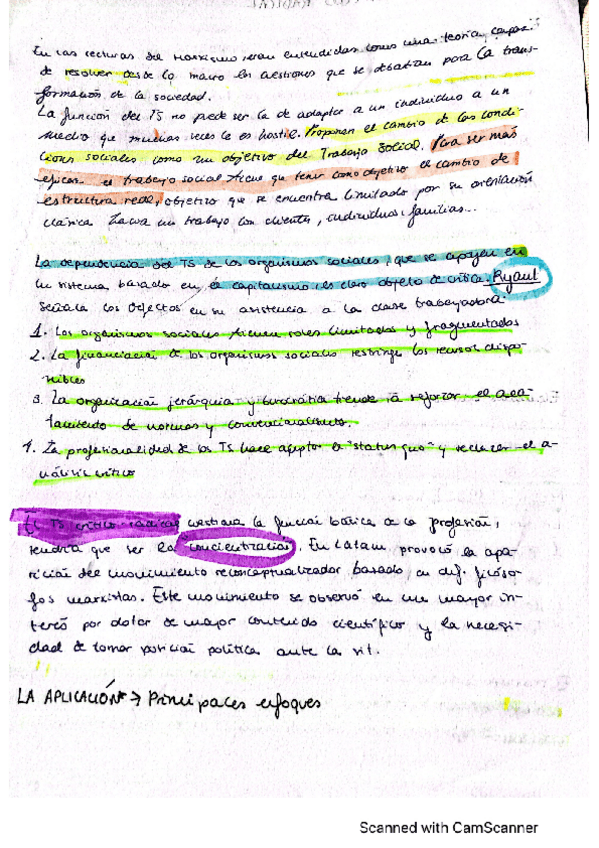 En las lecturas del marxismo serán entendidas como una teoría capaz
de resolver desde lo macro las cuestiones que se debatían para la trans-
formación de la sociedad.
La función del TS no puede ser la de adaptar a un individuo a un
medio que muchas veces le es hostil. Proponen el cambio de las condi-
ciones sociales como un objetivo del Trabajo Social. Para ser más
eficaz el trabajo social tiene que tener como objetivo el cambio de
estructura real, objetivo que se encuentra limitado por su orientación
clásica hacia un trabajo con clientes, individuos, familias...
La dependencia del TS de los organismos sociales, que se apoyen en
un sistema basado en el capitalismo, es claro objeto de crítica. Ryant
señala los defectos en su asistencia a la clase trabajadora
1. Los organismos sociales tienen roles limitados y fragmentados
2. La financiación de los organismos sociales restringe los recursos dispo-
nibles
3. La organización jerárquia y burocrática tiende a reforzar el aca-
tamiento de normas y convencionalismos.
4. La profesionalidad de los TS hace aceptar el "status quo" y rechazar el a-
nálisis crítico
El TS crítico-radical cuestiona la función básica de la profesión,
tendría que ser la concientización. En Latam provocó la apa-
rición del movimiento reconceptualizador basado en dif. filóso-
fos marxistas. Este movimiento se observó en un mayor in-
terés por dotar de mayor contenido científico y la necesi-
dad de tomar posición política ante la sit.
LA APLICACIÓN → Principales enfoques
Scanned with CamScanner